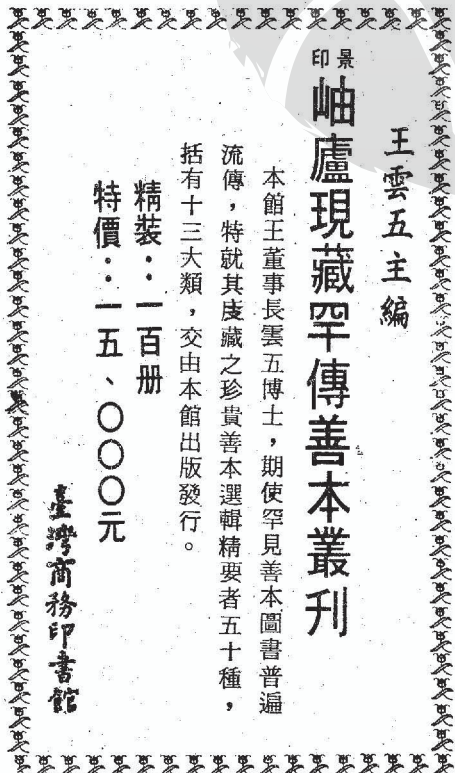 王雲五主編
景印
岫廬現藏罕傳善本叢刊
本館王董事長雲五博士，期使罕見善本圖書普遍
流傳，特就其庋藏之珍貴善本選輯精要者五十種，
括有十三大類，交由本館出版發行。
精裝：一百册
特價：一五、〇〇〇元
臺灣商務印書館